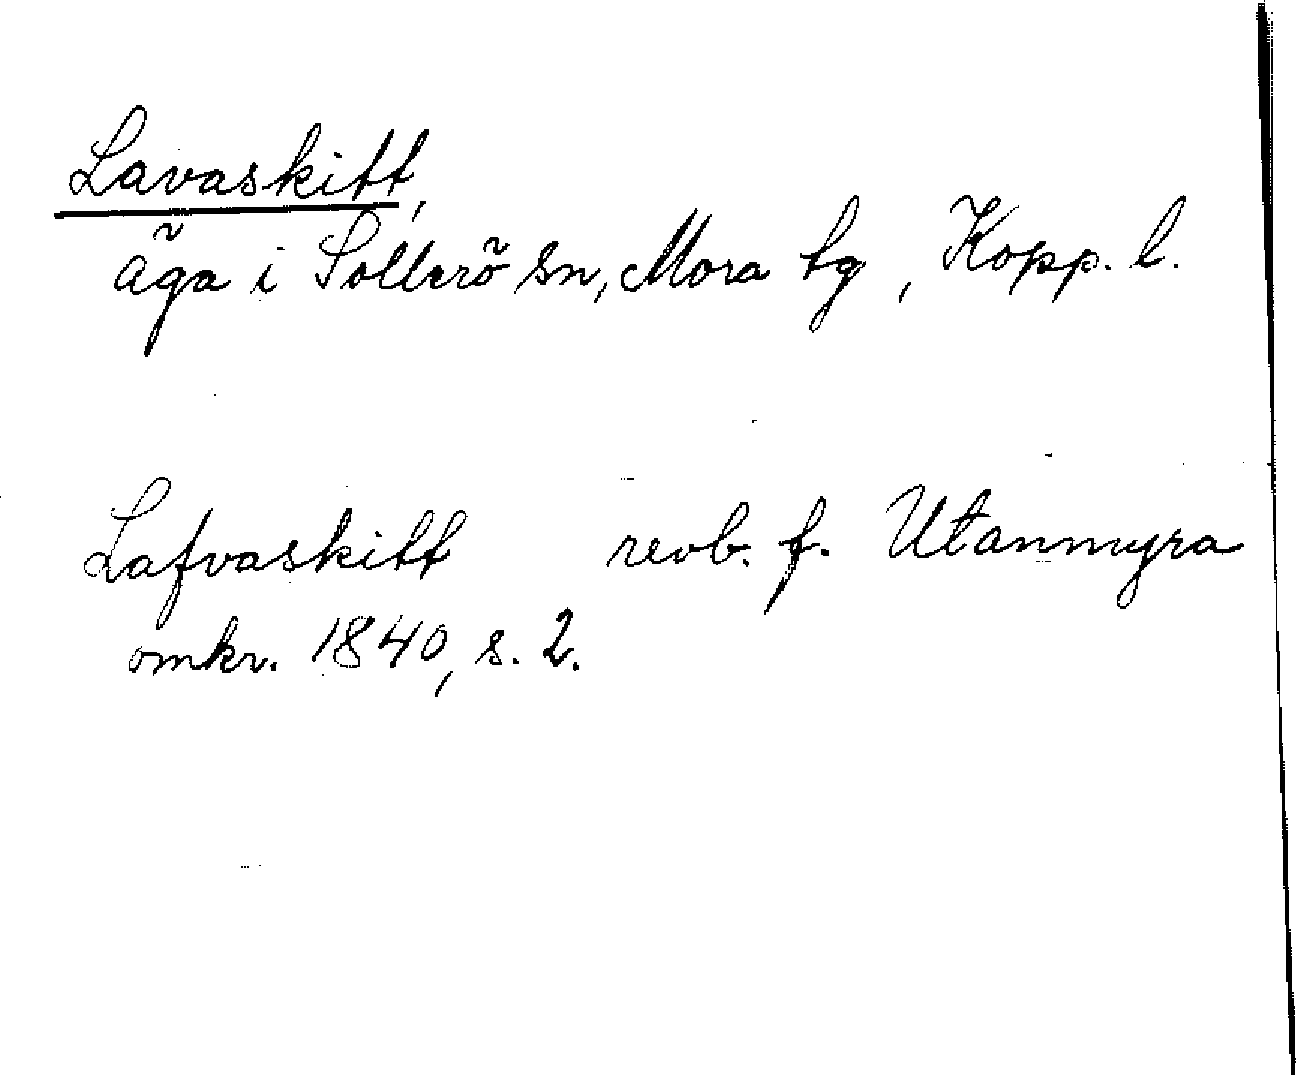 Lavaskitt,
äga i Sollerö sn, Mora tg, Kopp. l.
Lafvaskitt revb. f. Utanmyra
omkr. 1840, s. 2.